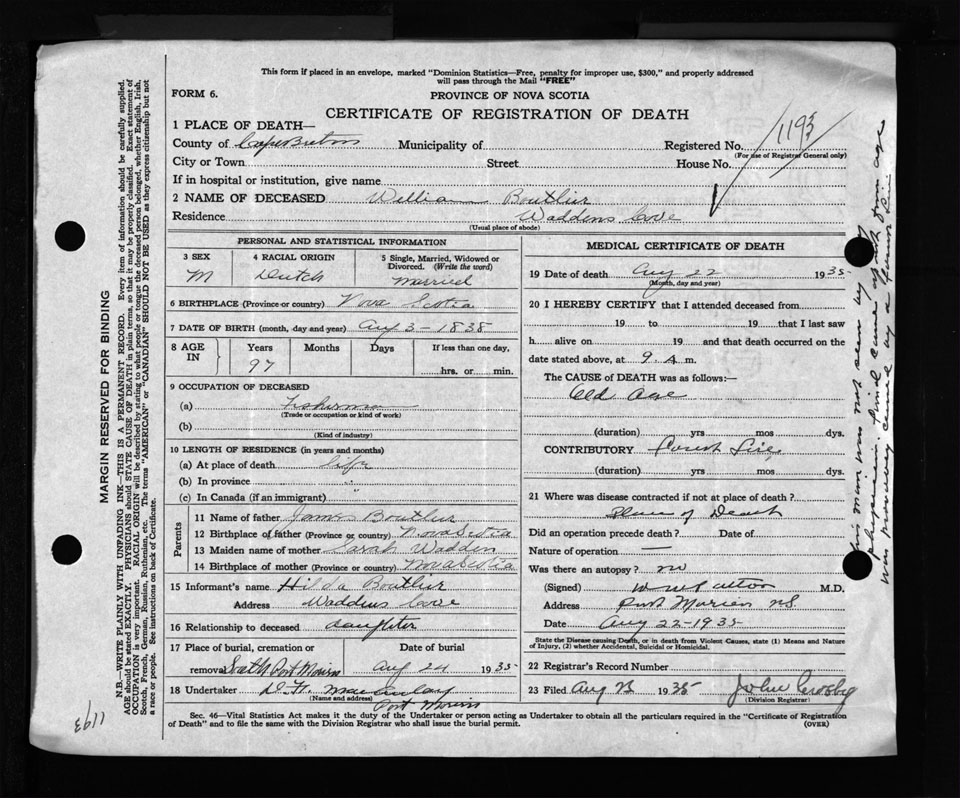 This form if placed in an envelope, marked "Dominion Statistics—Free, penalty for improper use, $300," and properly addressed
will pass through the Mail "FREE"
FORM 6.
PROVINCE OF NOVA SCOTIA
CERTIFICATE OF REGISTRATION OF DEATH
1193
1 PLACE OF DEATH—
County of Cape Breton Municipality of Registered No.
(For use of Registrar General only)
City or Town Street House No.
If in hospital or institution, give name
2 NAME OF DECEASED William Boutlier
Residence Waddens Cove
(Usual place of abode)
PERSONAL AND STATISTICAL INFORMATION
3 SEX 4 RACIAL ORIGIN 5 Single, Married, Widowed or
Divorced. (Write the word)
M Dutch Married
6 BIRTHPLACE (Province or country) Nova Scotia
7 DATE OF BIRTH (month, day and year) Aug 3 - 1838
8 AGE IN Years Months Days If less than one day,
97 hrs. or min.
9 OCCUPATION OF DECEASED
(a) Fisherman
(Trade or occupation or kind of work)
(b)
(Kind of industry)
10 LENGTH OF RESIDENCE (in years and months)
(a) At place of death life
(b) In province "
(c) In Canada (if an immigrant) "
Parents
11 Name of father James Boutlier
12 Birthplace of father (Province or country) Nova Scotia
13 Maiden name of mother Sarah Wadden
14 Birthplace of mother (Province or country) Nova Scotia
15 Informant's name Hilda Boutlier
Address Waddens Cove
16 Relationship to deceased daughter
17 Place of burial, cremation or Date of burial
removal South Port Morien Aug 24 1935
18 Undertaker
(Name and address)
Port Morien
MEDICAL CERTIFICATE OF DEATH
19 Date of death Aug 22 1935
(Month, day and year)
20 I HEREBY CERTIFY that I attended deceased from
19 to 19 that I last saw
h alive on 19 and that death occurred on the
date stated above, at 9. A. m.
The CAUSE of DEATH was as follows:—
Old Age
(duration) yrs mos dys.
CONTRIBUTORY Forest Fire
(duration) yrs mos dys.
21 Where was disease contracted if not at place of death?
Place of Death
Did an operation precede death? Date of
Nature of operation —
Was there an autopsy? no
(Signed) M.D.
Address Port Morien N.S.
Date Aug 22-1935
State the Disease causing Death, or in death from Violent Causes, state (1) Means and Nature
of Injury, (2) whether Accidental, Suicidal or Homicidal.
22 Registrar's Record Number
23 Filed Aug 1935 John Crosby
(Division Registrar)
Sec. 46—Vital Statistics Act makes it the duty of the Undertaker or person acting as Undertaker to obtain all the particulars required in the "Certificate of Registration
of Death" and to file the same with the Division Registrar who shall issue the burial permit.
(OVER)
MARGIN RESERVED FOR BINDING
N.B.—WRITE PLAINLY WITH UNFADING INK—THIS IS A PERMANENT RECORD. Every item of information should be carefully supplied.
AGE should be stated EXACTLY. PHYSICIANS should STATE CAUSE OF DEATH in plain terms, so that it may be properly classified. Exact statement of
OCCUPATION is very important. RACIAL ORIGIN will be described by stating to what people or tongue the deceased person belonged, whether English, Irish,
Scotch, French, German, Russian, Ruthenian, etc. The terms "AMERICAN" or "CANADIAN" SHOULD NOT BE USED as they express citizenship but not
a race or people. See instructions on back of Certificate.
1193
This man was not seen by
physician. Final cause of death from age
was caused by a Forest Fire